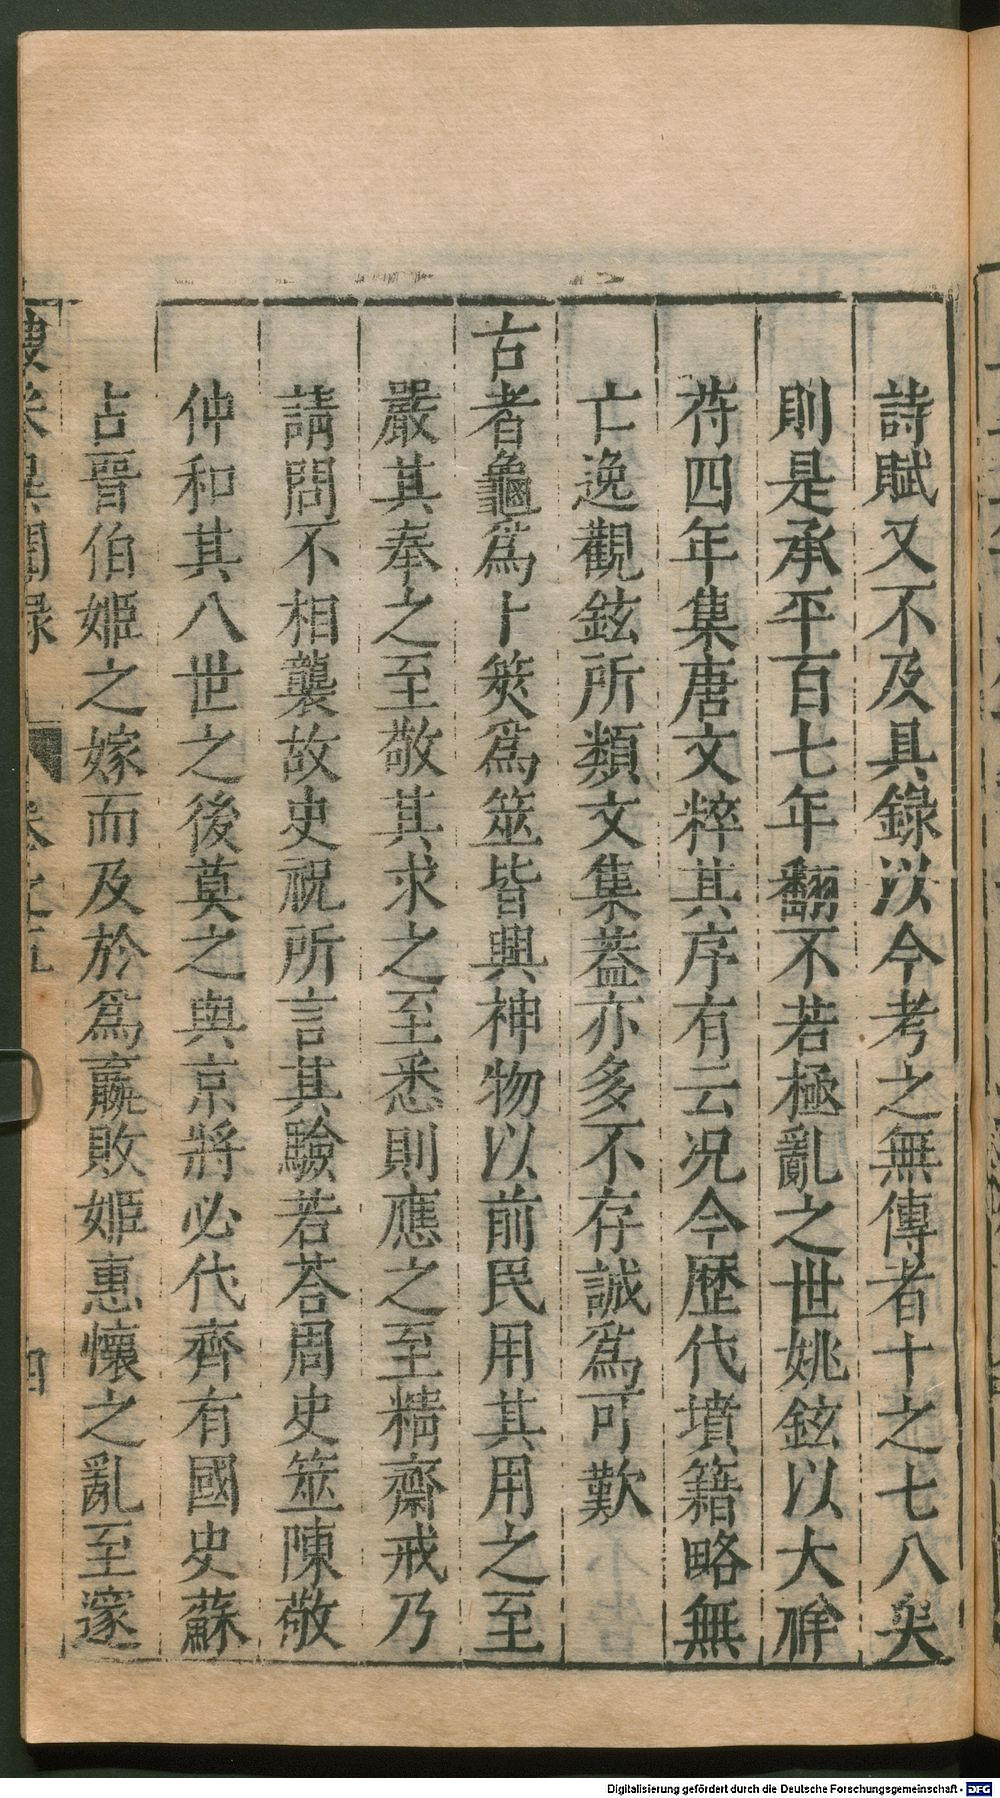 詩賦又不及具錄以今考之無傳者十之七八矣
則是承平百七年翻不若極亂之世姚鉉以大
符四年集唐文粹其序有云况今歷代墳籍略無
亡逸觀鉉所類文集蓋亦多不存誠爲可歎
古者龜爲卜筴爲筮皆興神物以前民用其用之至
嚴其奉之至敬其求之至悉則應之至精齋戒乃
請問不相襲故史祝所言其驗若荅周史筮陳敬
仲和其八世之後莫之與京將必代齊有國史蘇
占晉伯姬之嫁而及於爲嬴敗姬惠懷之亂至邃
異聞錄
卷之五
四
Digitalisierung gefördert durch die Deutsche Forschungsgemeinschaft - DFG